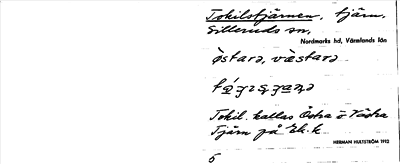 Tokilstjärnen, tjärn,
Silleruds sn,
Nordmarks hd, Värmlands län
östara, västara
Tokil. kallas Östra o Västra
Tjärn på Ek.k.
HERMAN HULTSTRÖM 1912
5